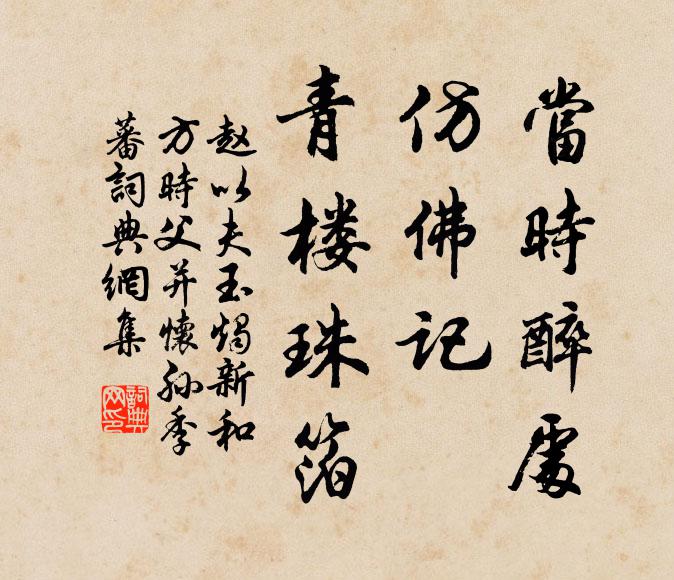 當時醉處
仿佛記
青楼珠箔
赵以夫玉燭新和
方時父并懷孙季
蕃詞典網集
詞典
网印